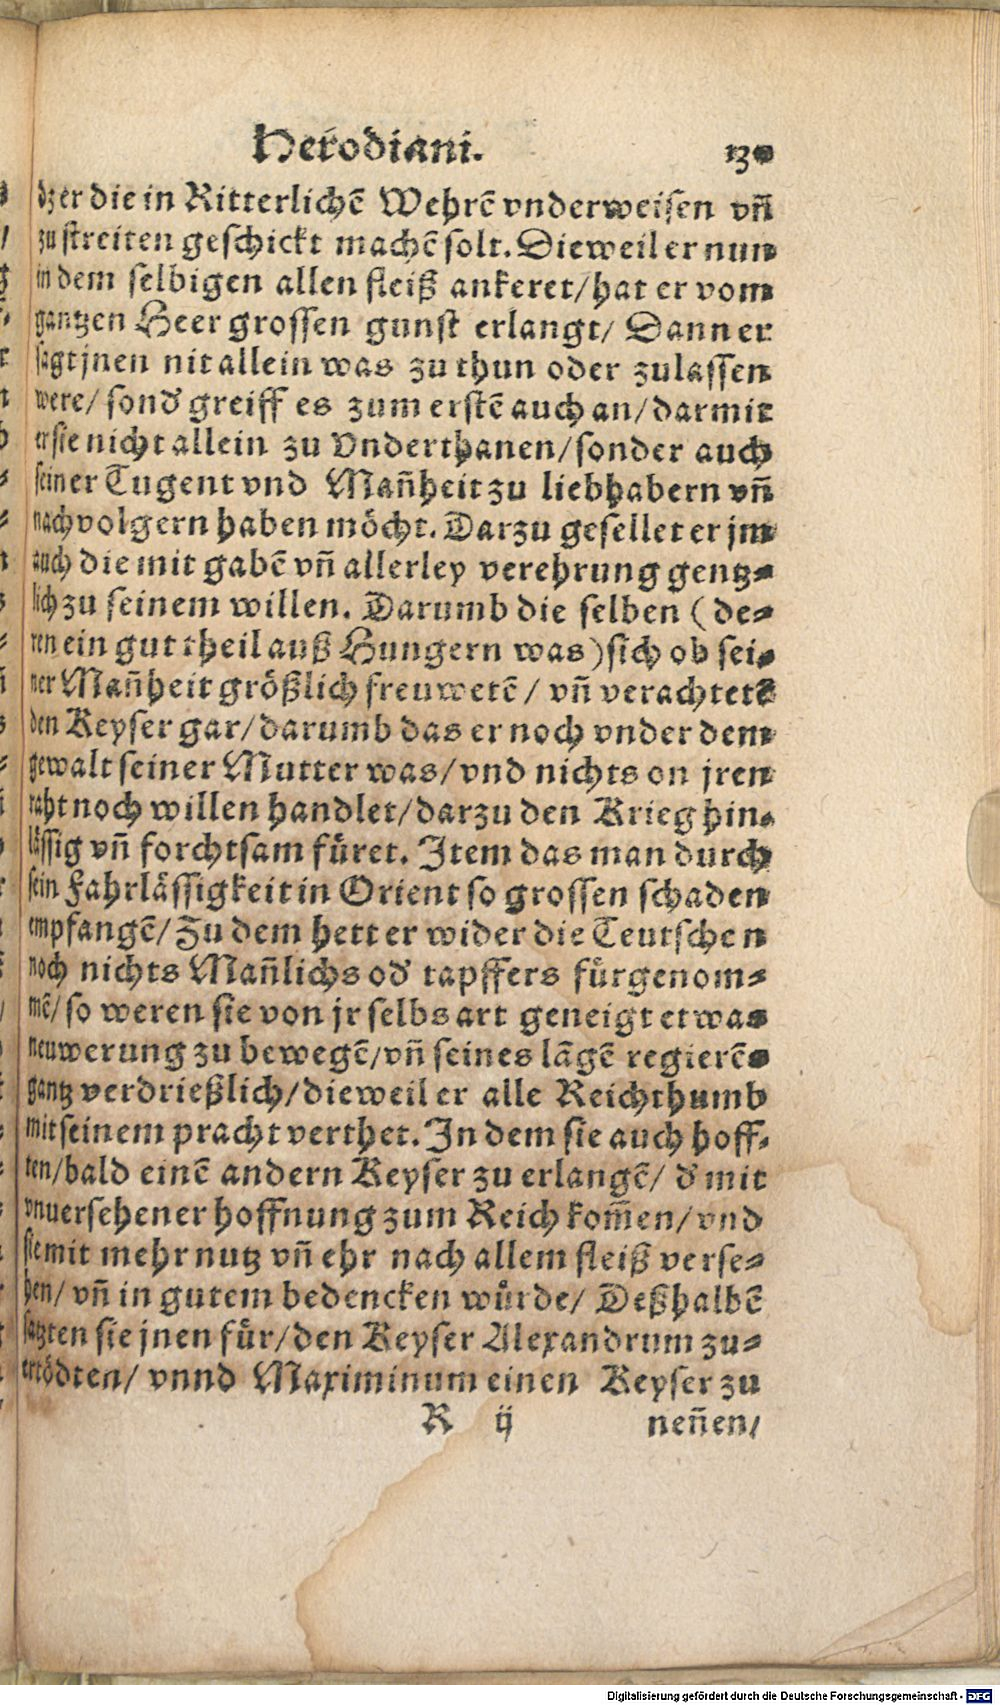 Herodiani. 130
dz er die in Ritterlichẽ Wehrẽ vnderweisen vñ
zu streiten geschickt machẽ solt. Dieweil er nun
in dem selbigen allen fleiß ankeret/ hat er vom
gantzen Heer grossen gunst erlangt/ Dann er
sagt jnen nit allein was zu thun oder zulassen
were/ sond' greiff es zum erstẽ auch an/ darmit
er sie nicht allein zu Vnderthanen/ sonder auch
seiner Tugent vnd Mañheit zu liebhabern vñ
nachvolgern haben möcht. Darzu gesellet er jm
auch die mit gabẽ vñ allerley verehrung gentz-
lich zu seinem willen. Darumb die selben (de-
ren ein gut theil auß Hungern was) sich ob sei-
ner Mañheit größlich freuwetẽ/ vñ verachtetẽ
den Keyser gar/ darumb das er noch vnder dem
gewalt seiner Mutter was/ vnd nichts on jren
raht noch willen handlet/ darzu den Krieg hin-
lässig vñ forchtsam füret. Item das man durch
sein Fahrlässigkeit in Orient so grossen schaden
empfangẽ/ Zu dem hett er wider die Teutschen
noch nichts Mañlichs od' tapffers fürgenom-
mẽ/ so weren sie von jr selbs art geneigt etwas
neuwerung zu bewegẽ/ vñ seines lãgẽ regierẽs
gantz verdrießlich/ dieweil er alle Reichthumb
mit seinem pracht verthet. In dem sie auch hoff-
ten/ bald einẽ andern Keyser zu erlangẽ/ d' mit
vnuersehener hoffnung zum Reich kom̃en/ vnd
sie mit mehr nutz vñ ehr nach allem fleiß verse-
hen/ vñ in gutem bedencken würde/ Deßhalbẽ
satzten sie jnen für/ den Keyser Alexandrum zu-
ertödten/ vnnd Maximinum einen Keyser zu
R ij neñen/
Digitalisierung gefördert durch die Deutsche Forschungsgemeinschaft - DFG